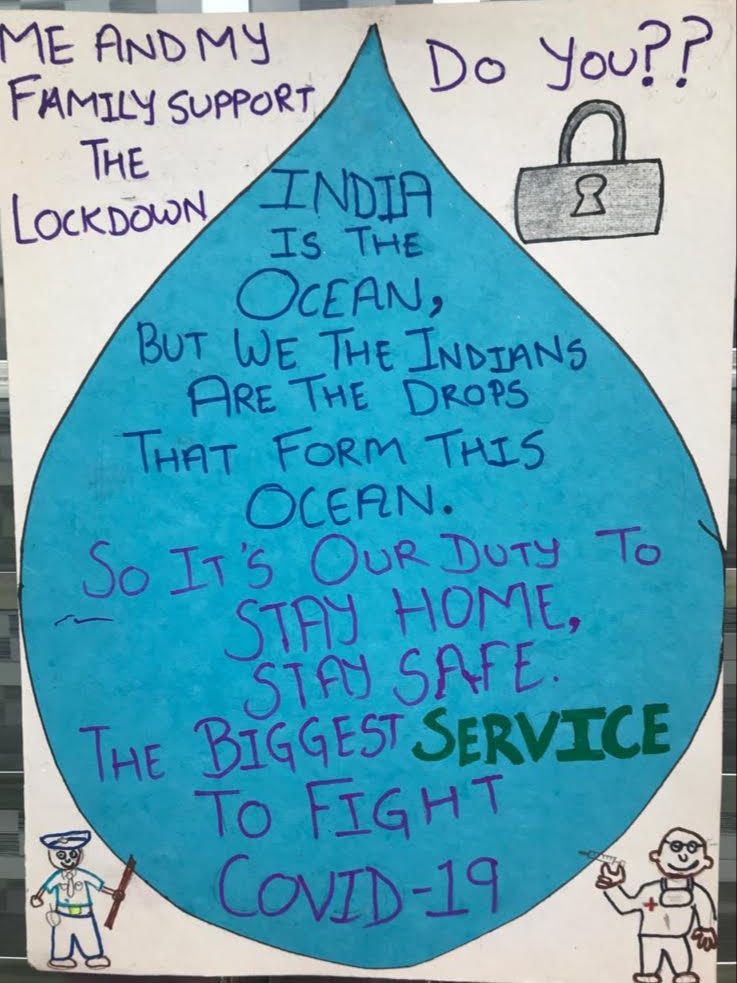 ME AND MY
FAMILY SUPPORT
THE
LOCKDOWN
Do You??
INDIA
IS THE
OCEAN,
BUT WE THE INDIANS
ARE THE DROPS
THAT FORM THIS
OCEAN.
SO IT'S OUR DUTY TO
STAY HOME,
STAY SAFE.
THE BIGGEST SERVICE
TO FIGHT
COVID-19